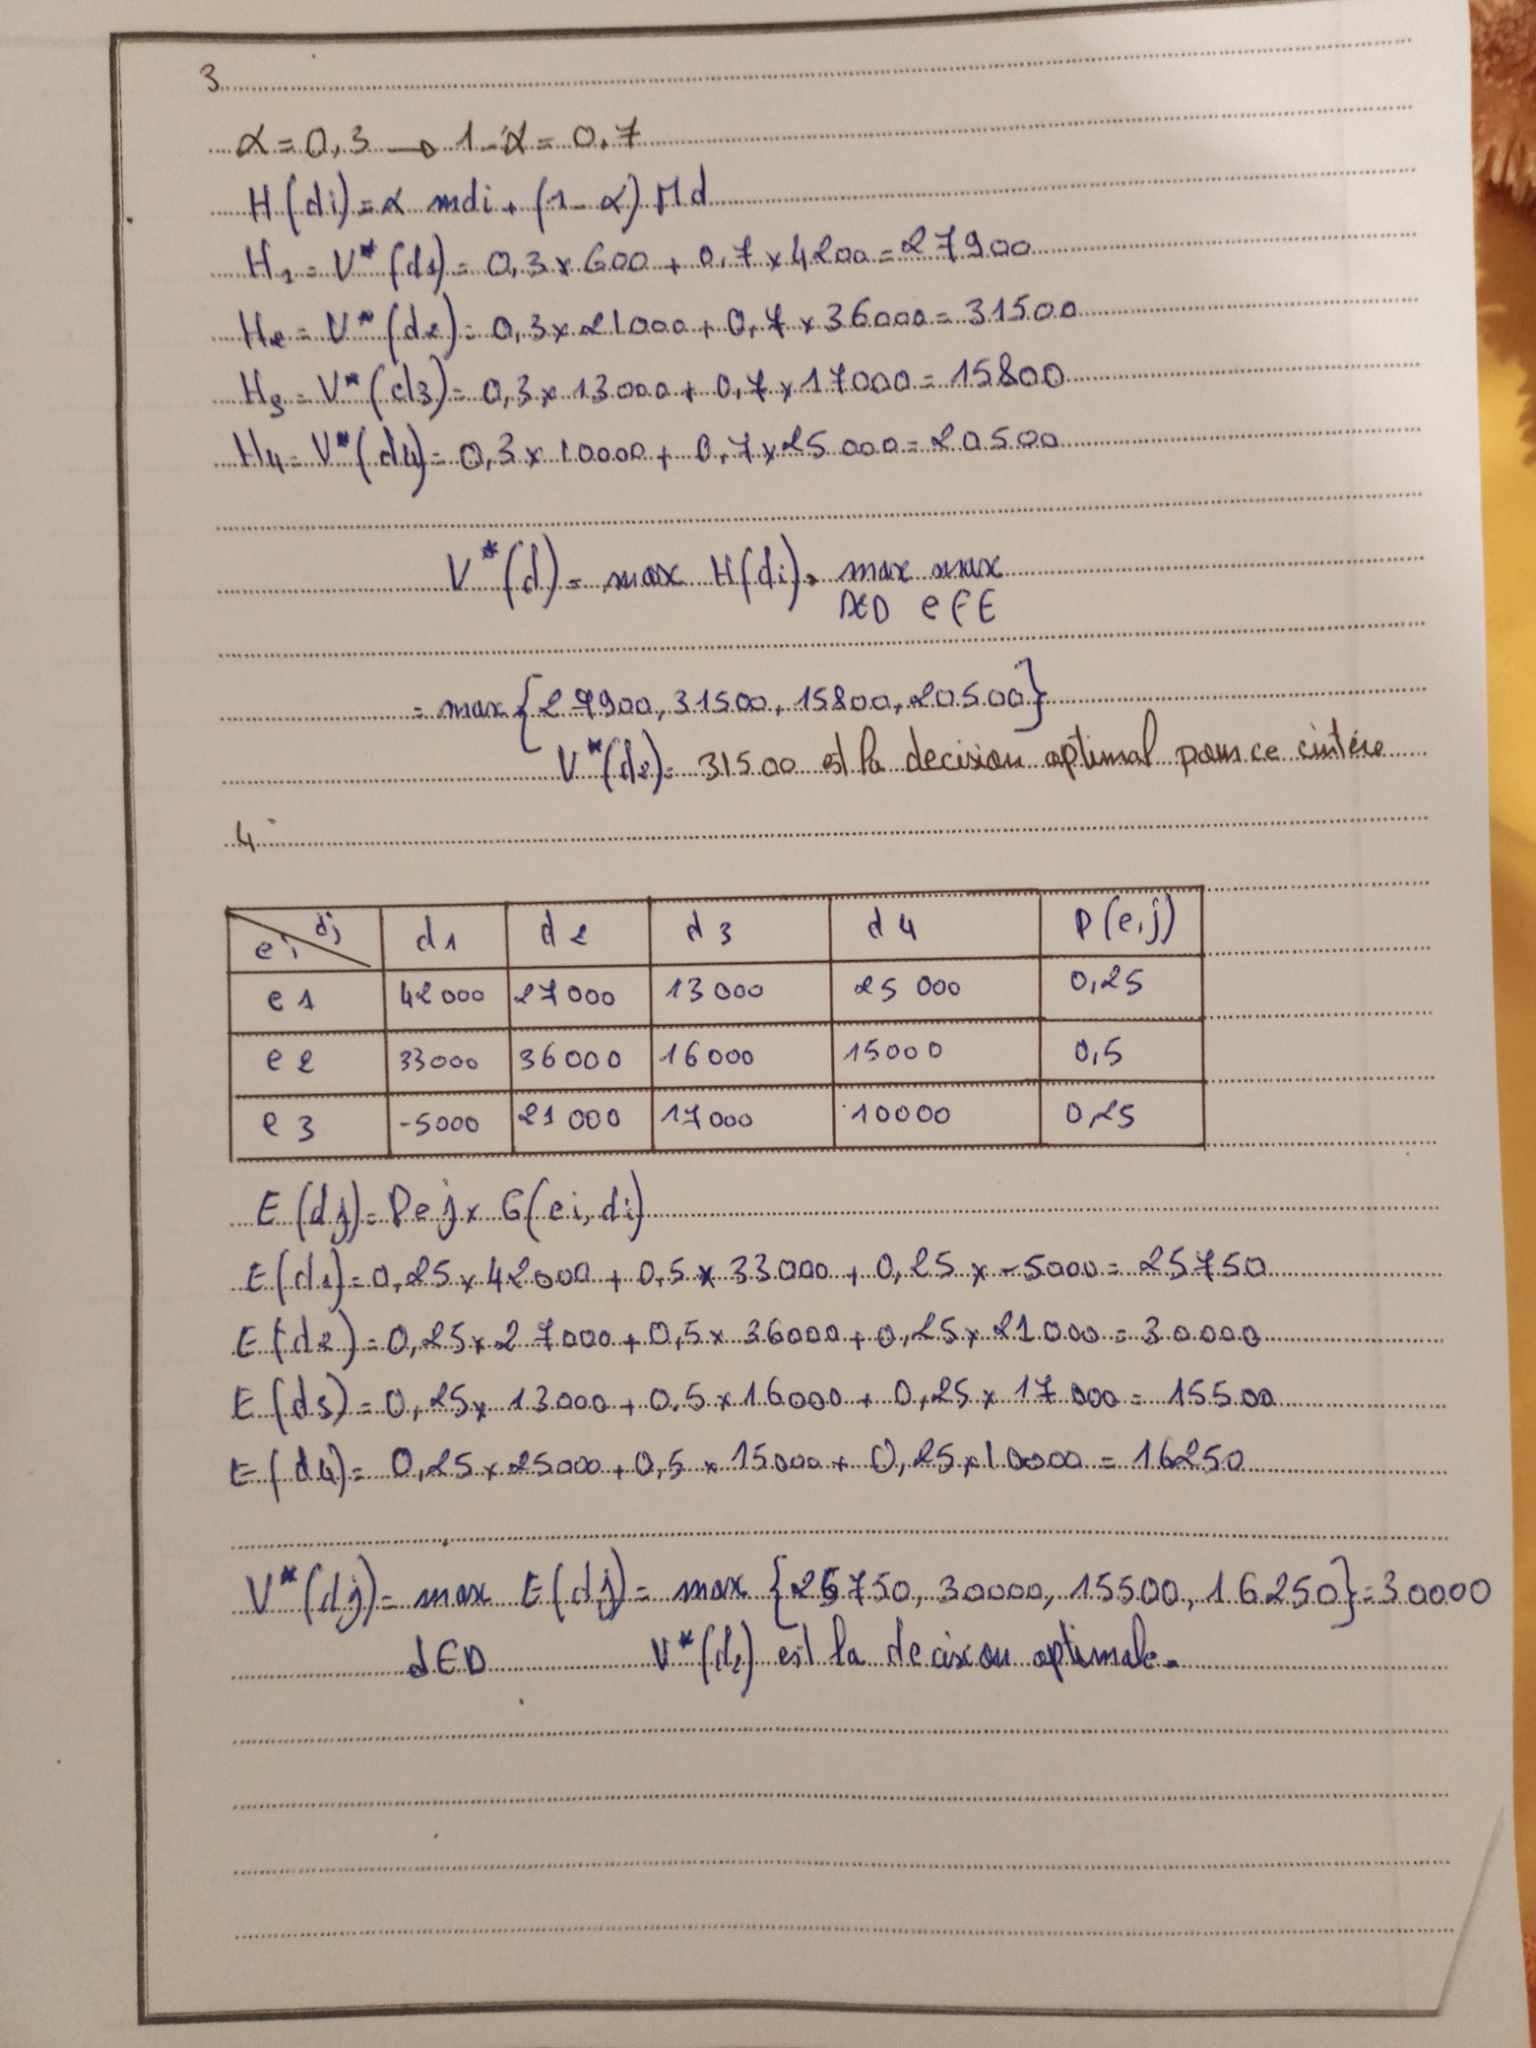 3
α = 0,3 → 1-α = 0,7
H(di) = α mdi + (1-α) Md
H1 = V*(d1) = 0,3 x 600 + 0,7 x 4200 = 27900
H2 = V*(d2) = 0,3 x 21000 + 0,7 x 36000 = 31500
H3 = V*(d3) = 0,3 x 13000 + 0,7 x 17000 = 15800
H4 = V*(d4) = 0,3 x 10000 + 0,7 x 25000 = 20500
V*(d) = max H(di) = max max
D∈D e∈E
= max {27900, 31500, 15800, 20500}
V*(d2) = 31500 est la decision optimal pour ce cintére
4
ei dj d1 d2 d3 d4 P(e,j)
e1 42000 27000 13000 25000 0,25
e2 33000 36000 16000 15000 0,5
e3 -5000 21000 17000 10000 0,25
E(dj) = Pej x G(ei, di)
E(d1) = 0,25 x 42000 + 0,5 x 33000 + 0,25 x -5000 = 25750
E(d2) = 0,25 x 27000 + 0,5 x 36000 + 0,25 x 21000 = 30000
E(d3) = 0,25 x 13000 + 0,5 x 16000 + 0,25 x 17000 = 15500
E(d4) = 0,25 x 25000 + 0,5 x 15000 + 0,25 x 10000 = 16250
V*(dj) = max E(dj) = max {25750, 30000, 15500, 16250} = 30000
d∈D V*(d2) est la decision optimale.